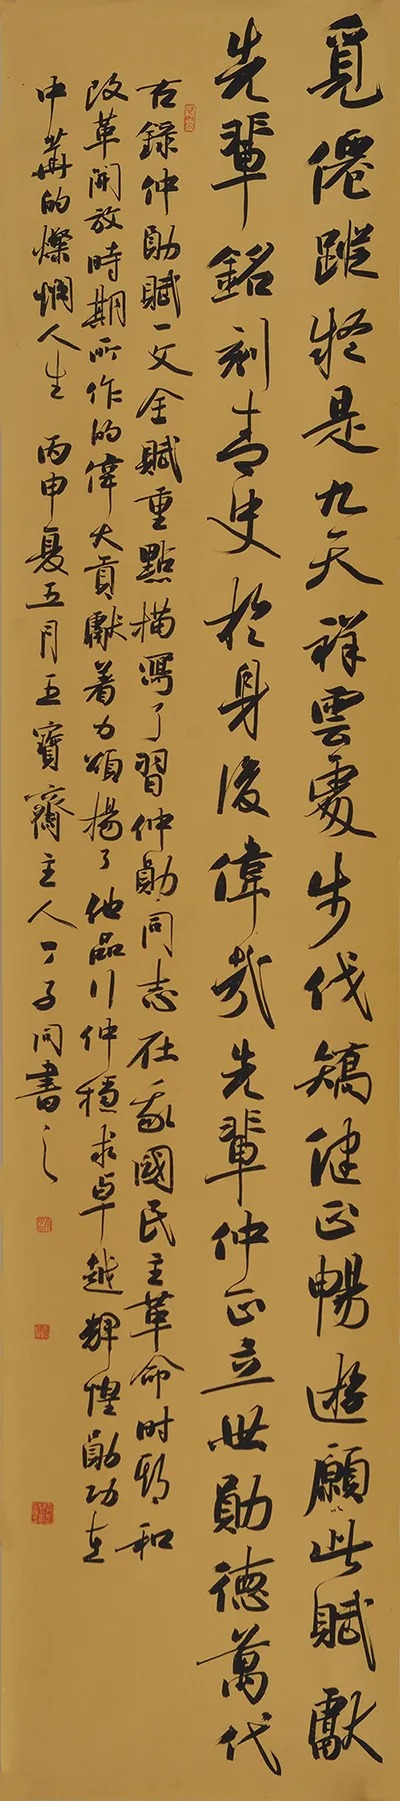 覓僊蹤疑是九天祥雲處步伐矯健正暢遊願此賦獻
先輩銘刻青史於身後偉哉先輩仲正立世勛德萬代
古錄仲勛賦一文全賦重點描寫了習仲勛同志在我國民主革命時期和
改革開放時期所作的偉大貢獻着力頌揚了他品行仲穩求卓越輝惶勛功在
中華的燦爛人生 丙申夏五月五寶齋主人丁子同書之